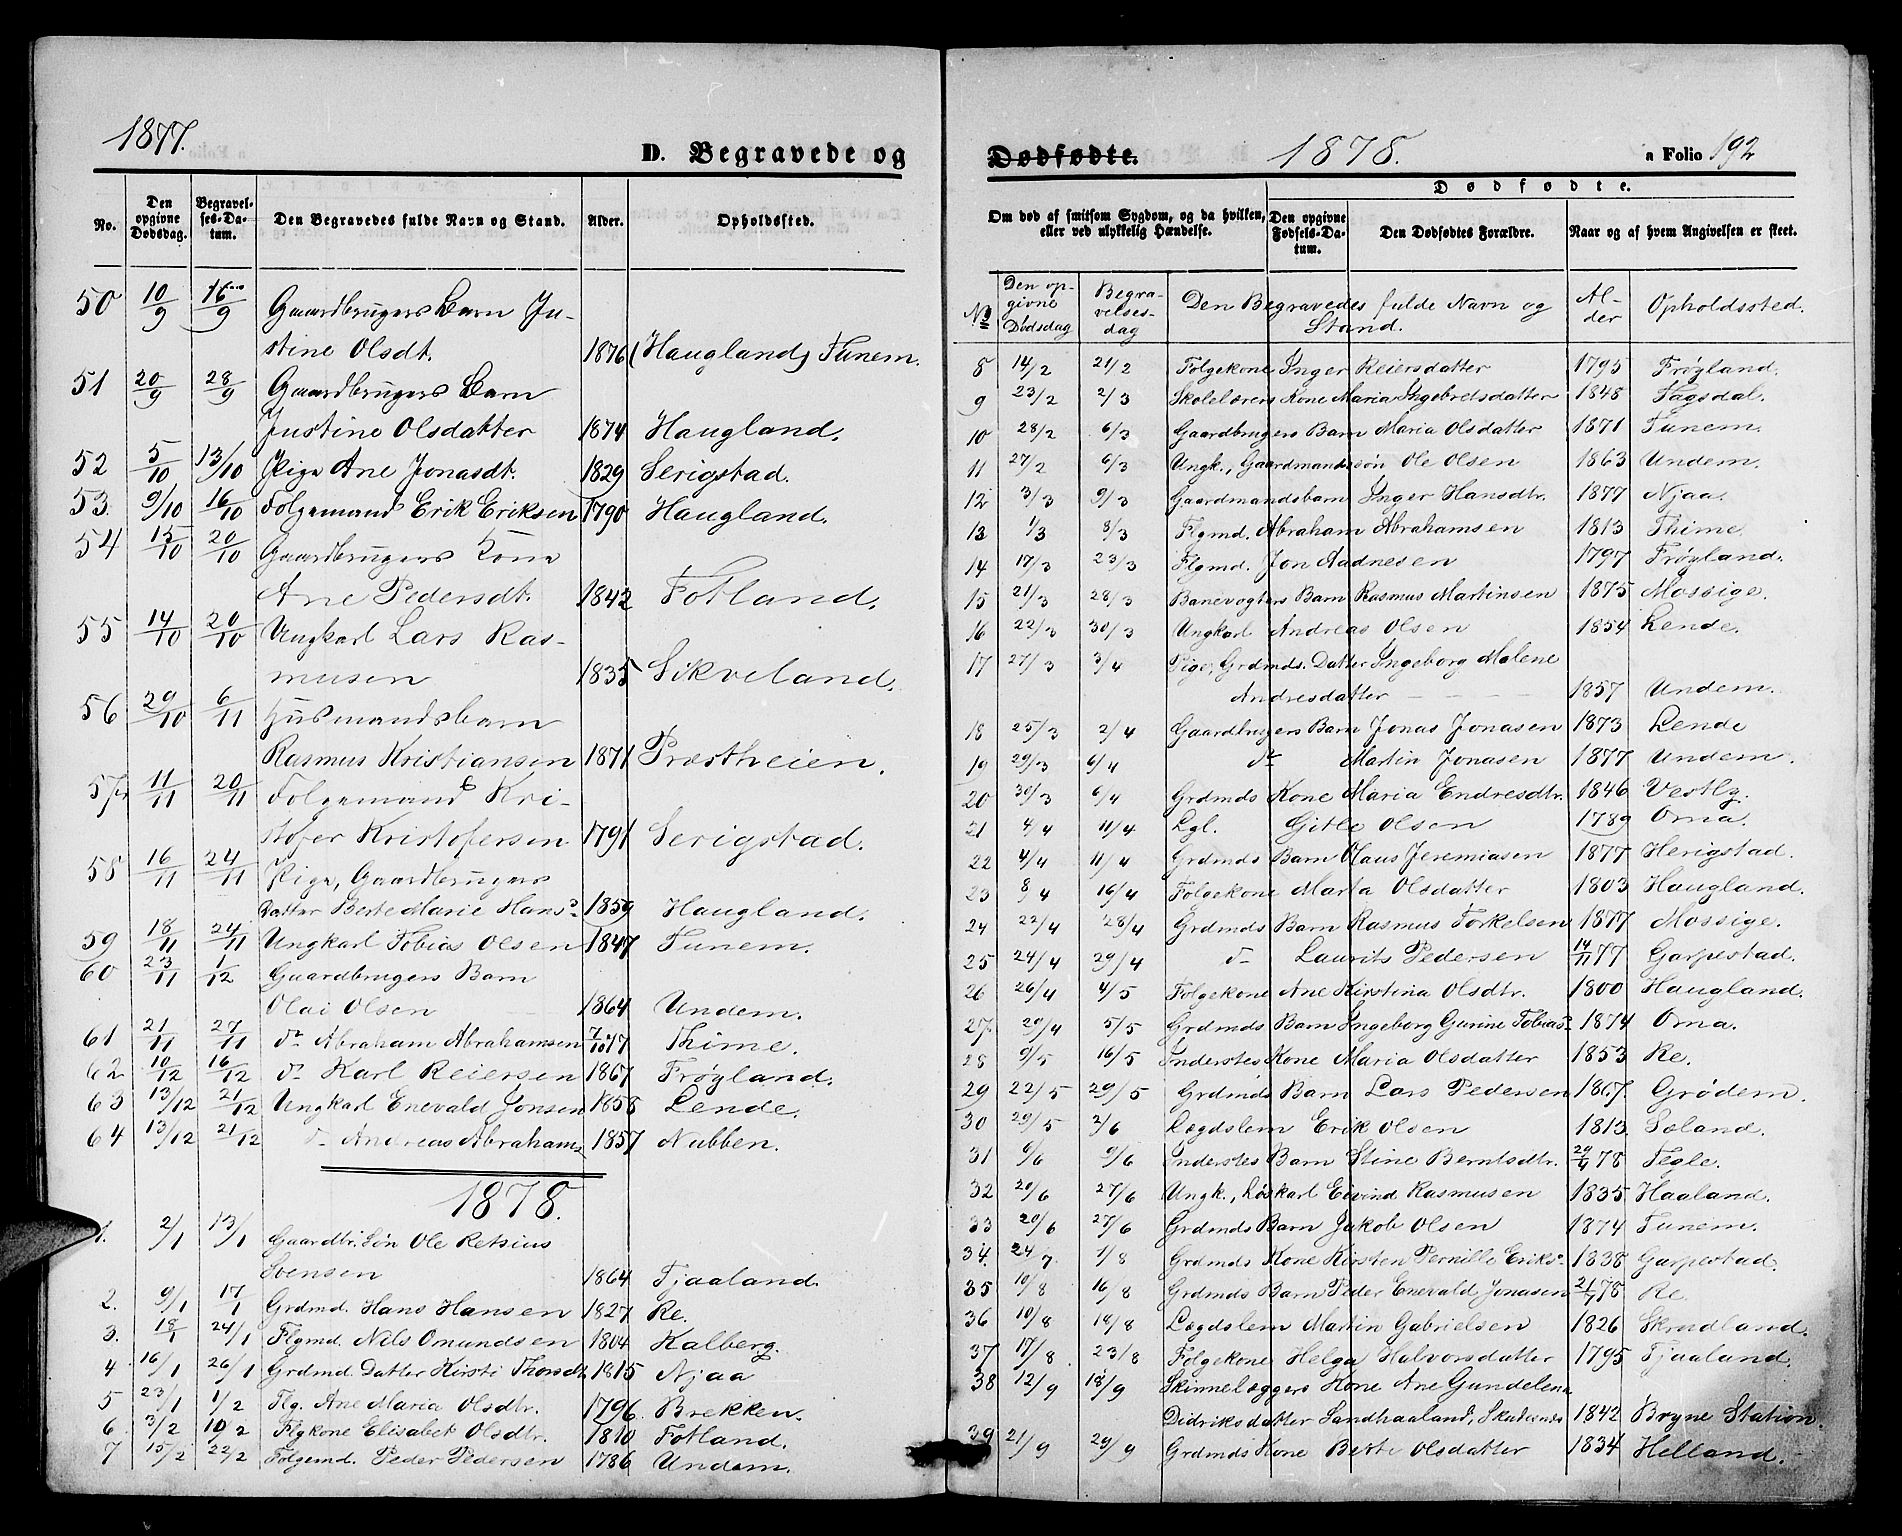 1877.
D. Begravede og
No.
Den opgivne Dødsdag.
Begravelses-Datum.
Den Begravedes fulde Navn og Stand.
Alder.
Opholdssted.
50 10/9 16/9 Gaardbrugers Barn Ju-
stine Olsdt. 1876 (Haugland) Tunem.
51 20/9 28/9 Gaardbrugers Barn
Justine Olsdatter 1874 Haugland.
52 5/10 13/10 Pige Ane Jonasdt. 1829 Serigstad.
53. 9/10 16/10 Folgemand Erik Eriksen 1790 Haugland.
54 15/10 20/10 Gaardbrugers Kone
Ane Pedersdt. 1842 Fotland.
55 14/10 20/10 Ungkarl Lars Ras-
musen 1835 Sikveland.
56 29/10 6/11 Husmandsbarn
Rasmus Kristiansen 1871 Præstheien.
57 11/11 20/11 Folgemand Kri-
stofer Kristofersen 1791 Serigstad.
58 16/11 24/11 Pige, Gaardbrugers
Datter Berte Marie Hans 1859 Haugland.
59 18/11 24/11 Ungkarl Tobias Olsen 1847 Tunem.
60 23/11 1/12 Gaardbrugers Barn
Olai Olsen 1864 Undem.
61 21/11 27/11 do Abraham Abrahamsen 7/10 77 Thime.
62 10/12 16/12 do Karl Reiersen 1867 Frøyland.
63 13/12 21/12 Ungkarl Enevald Jonsen 1858 Lende.
64 13/12 21/12 do Andreas Abrahams 1857 Nubben.
1878.
1. 2/1 13/1 Gaardbr. Søn Ole Retsius
Svensen 1864 Tjaaland.
2. 9/1 17/1 Grdmd. Hans Hansen 1827 Re.
3. 18/1 24/1 Flgmd. Nils Omundsen 1804 Kalberg.
4. 16/1 26/1 Grdmd Datter Kirsti Thorsdt. 1815 Njaa
5 23/1 1/2 Flg. Ane Maria Olsdtr. 1796 Brekken.
6. 3/2 10/2 Flgkone Elisabet Olsdtr. 1810 Fotland.
7 15/2 22/2 Folgemd. Peder Pedersen 1786 Undem.
Dødfødte.
1878.
a Folio 192
Om død af smitsom Sygdom, og da hvilken, eller ved ulykkelig Hændelse.
Dødfødte.
Den opgivne Fødsels-Datum.
Den Dødfødtes Forældre.
Naar og af hvem Angivelsen er skeet.
No
Den op-
givne
Dødsdag
Begra-
velses-
dag
Den Begravedes fulde Navn og
Stand.
Al-
der
Opholdssted.
8 14/2 21/2 Folgekone Inger Reiersdatter 1795 Frøyland.
9 23/2 2/3 Skolelærers Kone Maria Ingebretsdatter 1848 Fagsdal.
10 28/2 6/3 Gaardbrugers Barn Maria Olsdatter 1871 Tunem.
11 27/2 6/3 Ungk., Gaardmandssøn Ole Olsen 1863 Undem.
12 3/3 9/3 Gaardmandsbarn Inger Hansdtr. 1877 Njaa.
13 1/3 8/3 Flgmd. Abraham Abrahamsen 1813 Thime.
14 17/3 23/3 Flgmd. Jon Aadnesen 1797 Frøyland.
15 21/3 28/3 Banevogters Barn Rasmus Martinsen 1875 Mossige.
16 22/3 30/3 Ungkarl Andreas Olsen 1854 Lende.
17 27/3 3/4 Pige, Grdmds. Datter Ingeborg Malene
Andresdatter 1857 Undem.
18 25/3 2/4 Gaardbrugers Barn Jonas Jonasen 1873 Lende
19 29/3 6/4 do Martin Jonasen 1877 Undem.
20 30/3 6/4 Grdmds Kone Maria Endresdtr. 1846 Vestly.
21 4/4 11/4 Lgl. Gitle Olsen 1789 Oma.
22 4/4 11/4 Grdmds Barn Olaus Jeremiasen 1877 Herigstad.
23 8/4 16/4 Folgekone Marta Olsdatter 1803 Haugland.
24 22/4 28/4 Grdmds Barn Rasmus Torkelsen 1877 Mossige.
25 24/4 29/4 do Laurits Pedersen 14/11 77 Garpestad.
26 26/4 4/5 Folgekone Ane Kirstina Olsdtr. 1800 Haugland.
27. 29/4 5/5 Grdmds Barn Ingeborg Gurine Tobias 1874 Oma.
28 9/5 16/5 Inderstes Kone Maria Olsdatter 1853 Re.
29 22/5 29/5 Grdmds Barn Lars Pedersen 1867. Grødem.
30 29/5 2/6 Lægdslem Erik Olsen 1813 Sæland.
31 6/6 9/6 Inderstes Barn Stine Berntsdtr. 29/4 78 Tegle.
32 20/6 27/6 Ungk., Løskarl Eivind Rasmusen 1835 Haaland.
33 20/6 27/6 Grdmds Barn Jakob Olsen 1874 Tunem.
34. 24/7 1/8 Grdmds Kone Kirsten Pernille Eriks 1838 Garpestad.
35 10/8 16/8 Grdmds Barn Peder Enevald Jonasen 21/7 78 Re.
36 10/8 18/8 Lægdslem Martin Gabrielsen 1826 Skrudland.
37 17/8 23/8 Folgekone Helga Halvorsdatter 1795 Tjaaland.
38 12/9 18/9 Skinnelæggers Kone Ane Gundelena
Didriksdatter Sandhaaland, Skudesnes 1842 Bryne Station.
39 21/9 29/9 Grdmds Kone Berte Olsdatter 1834 Helland.